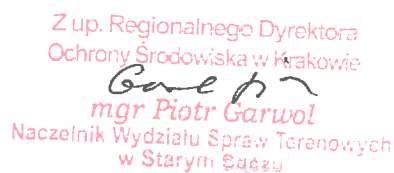 Z up. Regionalnego Dyrektora
Ochrony Środowiska w Krakowie
mgr Piotr Garwol
Naczelnik Wydziału Spraw Terenowych
w Starym Sączu